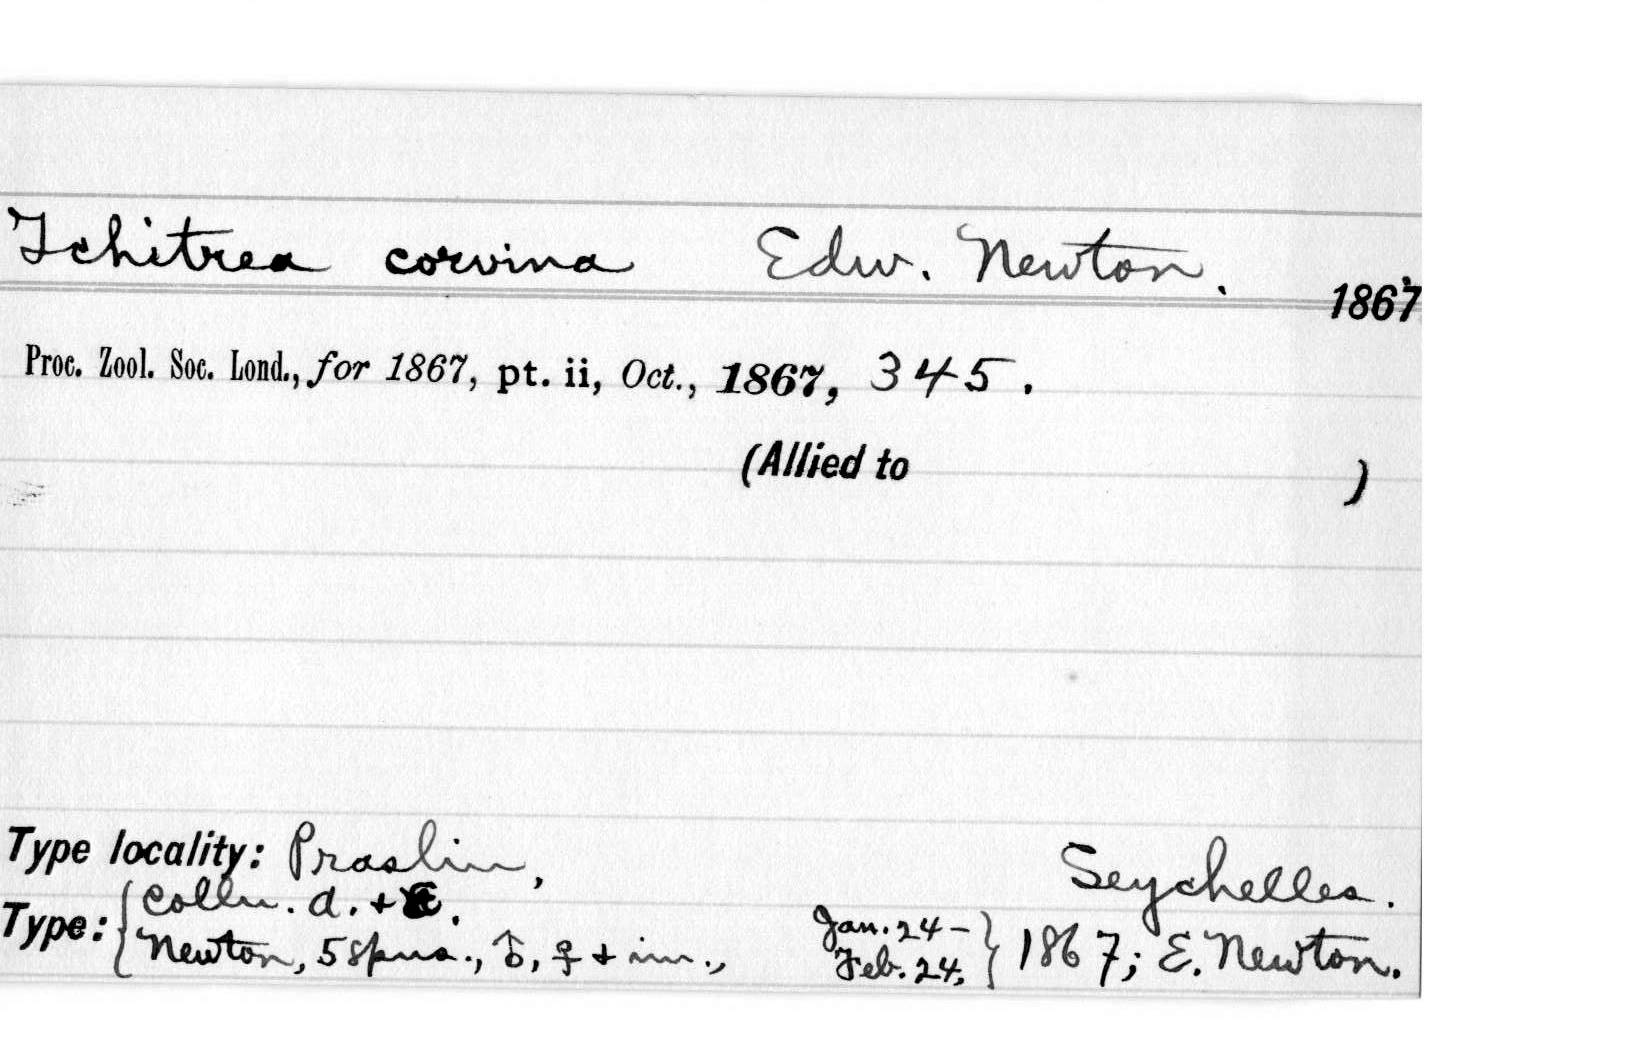 Tchitrea corvina Edw. Newton. 1867
Proc. Zool. Soc. Lond., for 1867, pt. ii, Oct., 1867, 345.
(Allied to )
Type locality: Praslin, Seychelles.
Type: { Colln. A. + E.
Newton, 5 spns., ♂, ♀ + im., Jan. 24 – Feb. 24, } 1867; E. Newton.